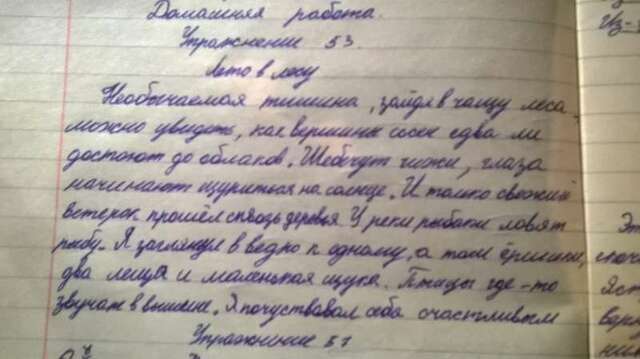 Домашняя работа.
Упражнение 53.
Лето в лесу
Необычаемая тишина, зайдя в чащу леса -
можно увидеть, как вершины сосен едва ли
достают до облаков. Щебечут чижи, глаза
начинают щуриться на солнце. И только свежий
ветерок прошёл сквозь деревья. У реки рыбаки ловят
рыбу. Я заглянул в ведно к одному, а там ёршики,
два леща и маленькая щука. Птицы где-то
звучат в вышене. Я почуствовал себя счастливым
Упражнение 57
Из-
Эт
Яст